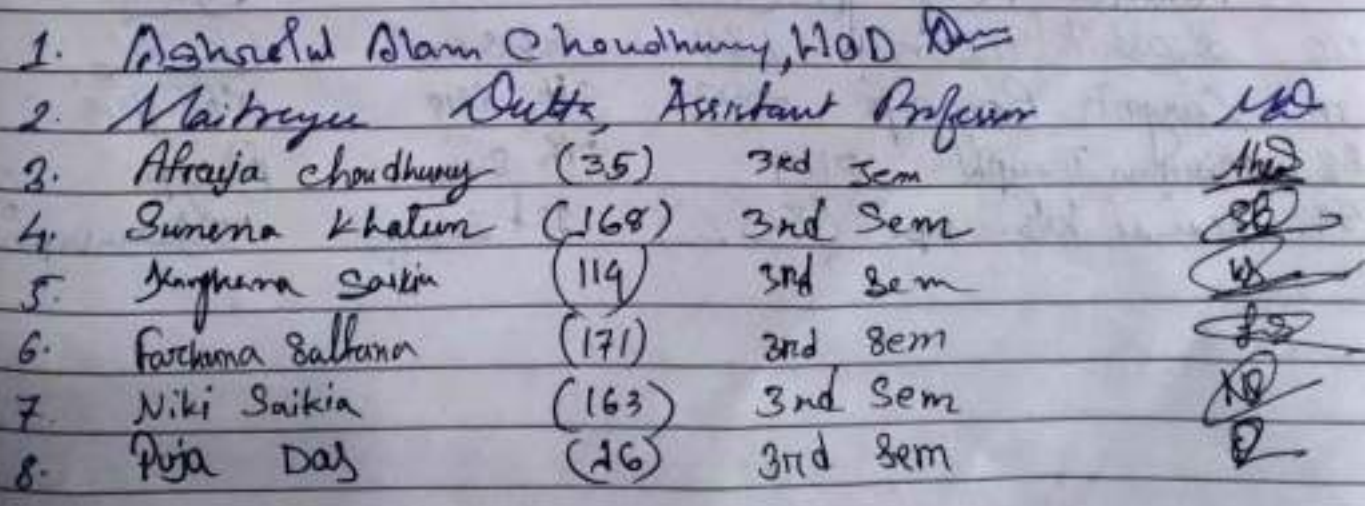 1. Ashraful Alam Choudhury, HOD
2. Maitreyee Dutta, Assistant Professor MD
3. Afraja Choudhury (35) 3rd Sem
4. Sunena Khatun (168) 3rd Sem
5. Saikia (119) 3rd Sem
6. Farhana Saltana (171) 3rd Sem
7. Niki Saikia (163) 3rd Sem
8. Puja Das (26) 3rd Sem